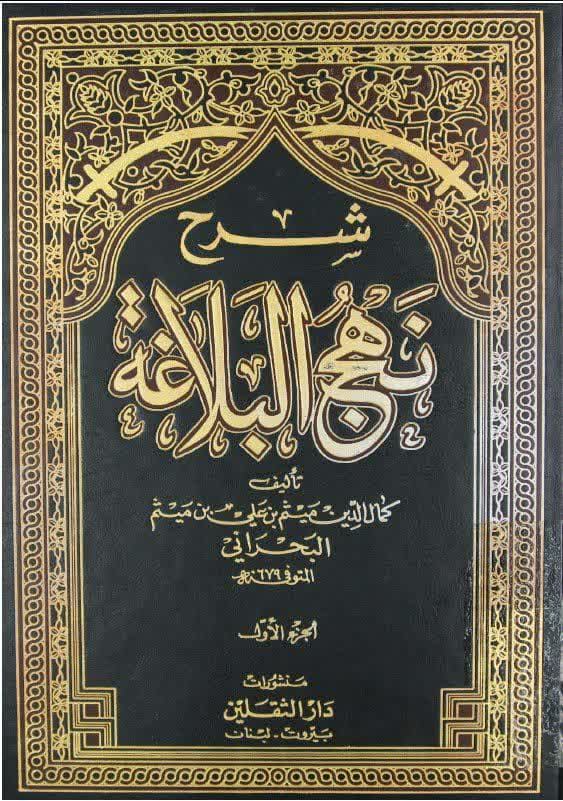 شرح
نَهْجُ البَلَاغَة
تأليف
كمال الدين ميثم بن علي بن ميثم
البحراني
المتوفى ٦٧٩هـ
الجزء الأول
منشورات
دار الثقلين
بيروت - لبنان